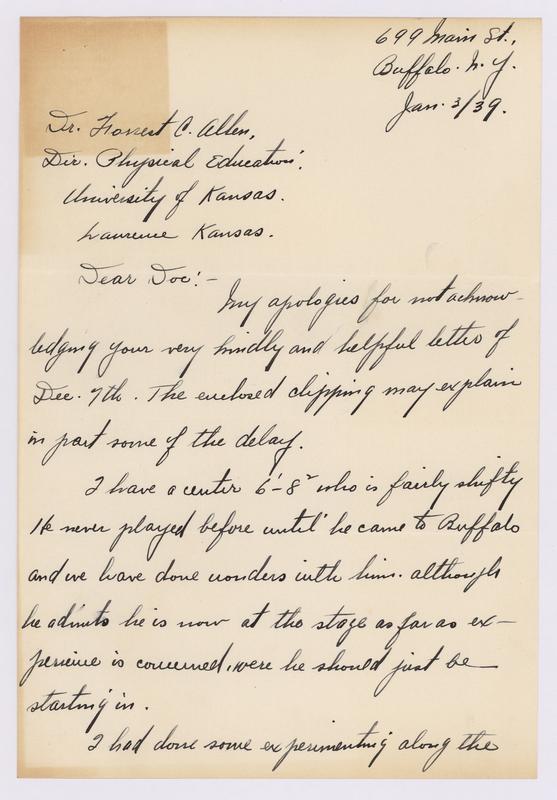 699 Main St.,
Buffalo. N. Y.
Jan. 3/39.
Dr. Forrest C. Allen,
Dir. Physical Education,
University of Kansas.
Lawrence Kansas.
Dear Doc:-
My apologies for not acknow-
ledging your very kindly and helpful letter of
Dec. 7th. The enclosed clipping may explain
in part some of the delay.
I have a center 6'-8" who is fairly shifty
He never played before until he came to Buffalo
and we have done wonders with him. although
he admits he is now at the stage as far as ex-
perience is concerned, were he should just be
starting in.
I had done some experimenting along the